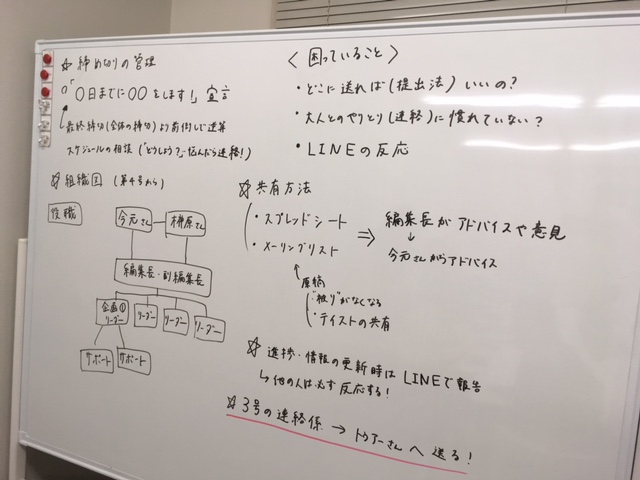 ☆ 締め切りの管理
○「○日までに○○をします!」宣言
最終締切(全体の締切)より前倒しで逆算
スケジュールの相談("どうしよう?"悩んだら連絡!)
☆ 組織図 (第4号から)
役職
今元さん 榊原さん
編集長・副編集長
企画①リーダー リーダー リーダー リーダー
サポート サポート
<困っていること>
・どこに送れば(提出法)いいの?
・大人とのやりとり(連絡)に慣れていない?
・LINEの反応
☆ 共有方法
・スプレッドシート
・メーリングリスト
⇒ 編集長がアドバイスや意見
↓
今元さんからアドバイス
↑
原稿
・"被り"がなくなる
・テイストの共有
☆ 進捗・情報の更新時はLINEで報告
↳他の人は必ず反応する!
☆ 3号の連絡係 → トゥアーさんへ送る!